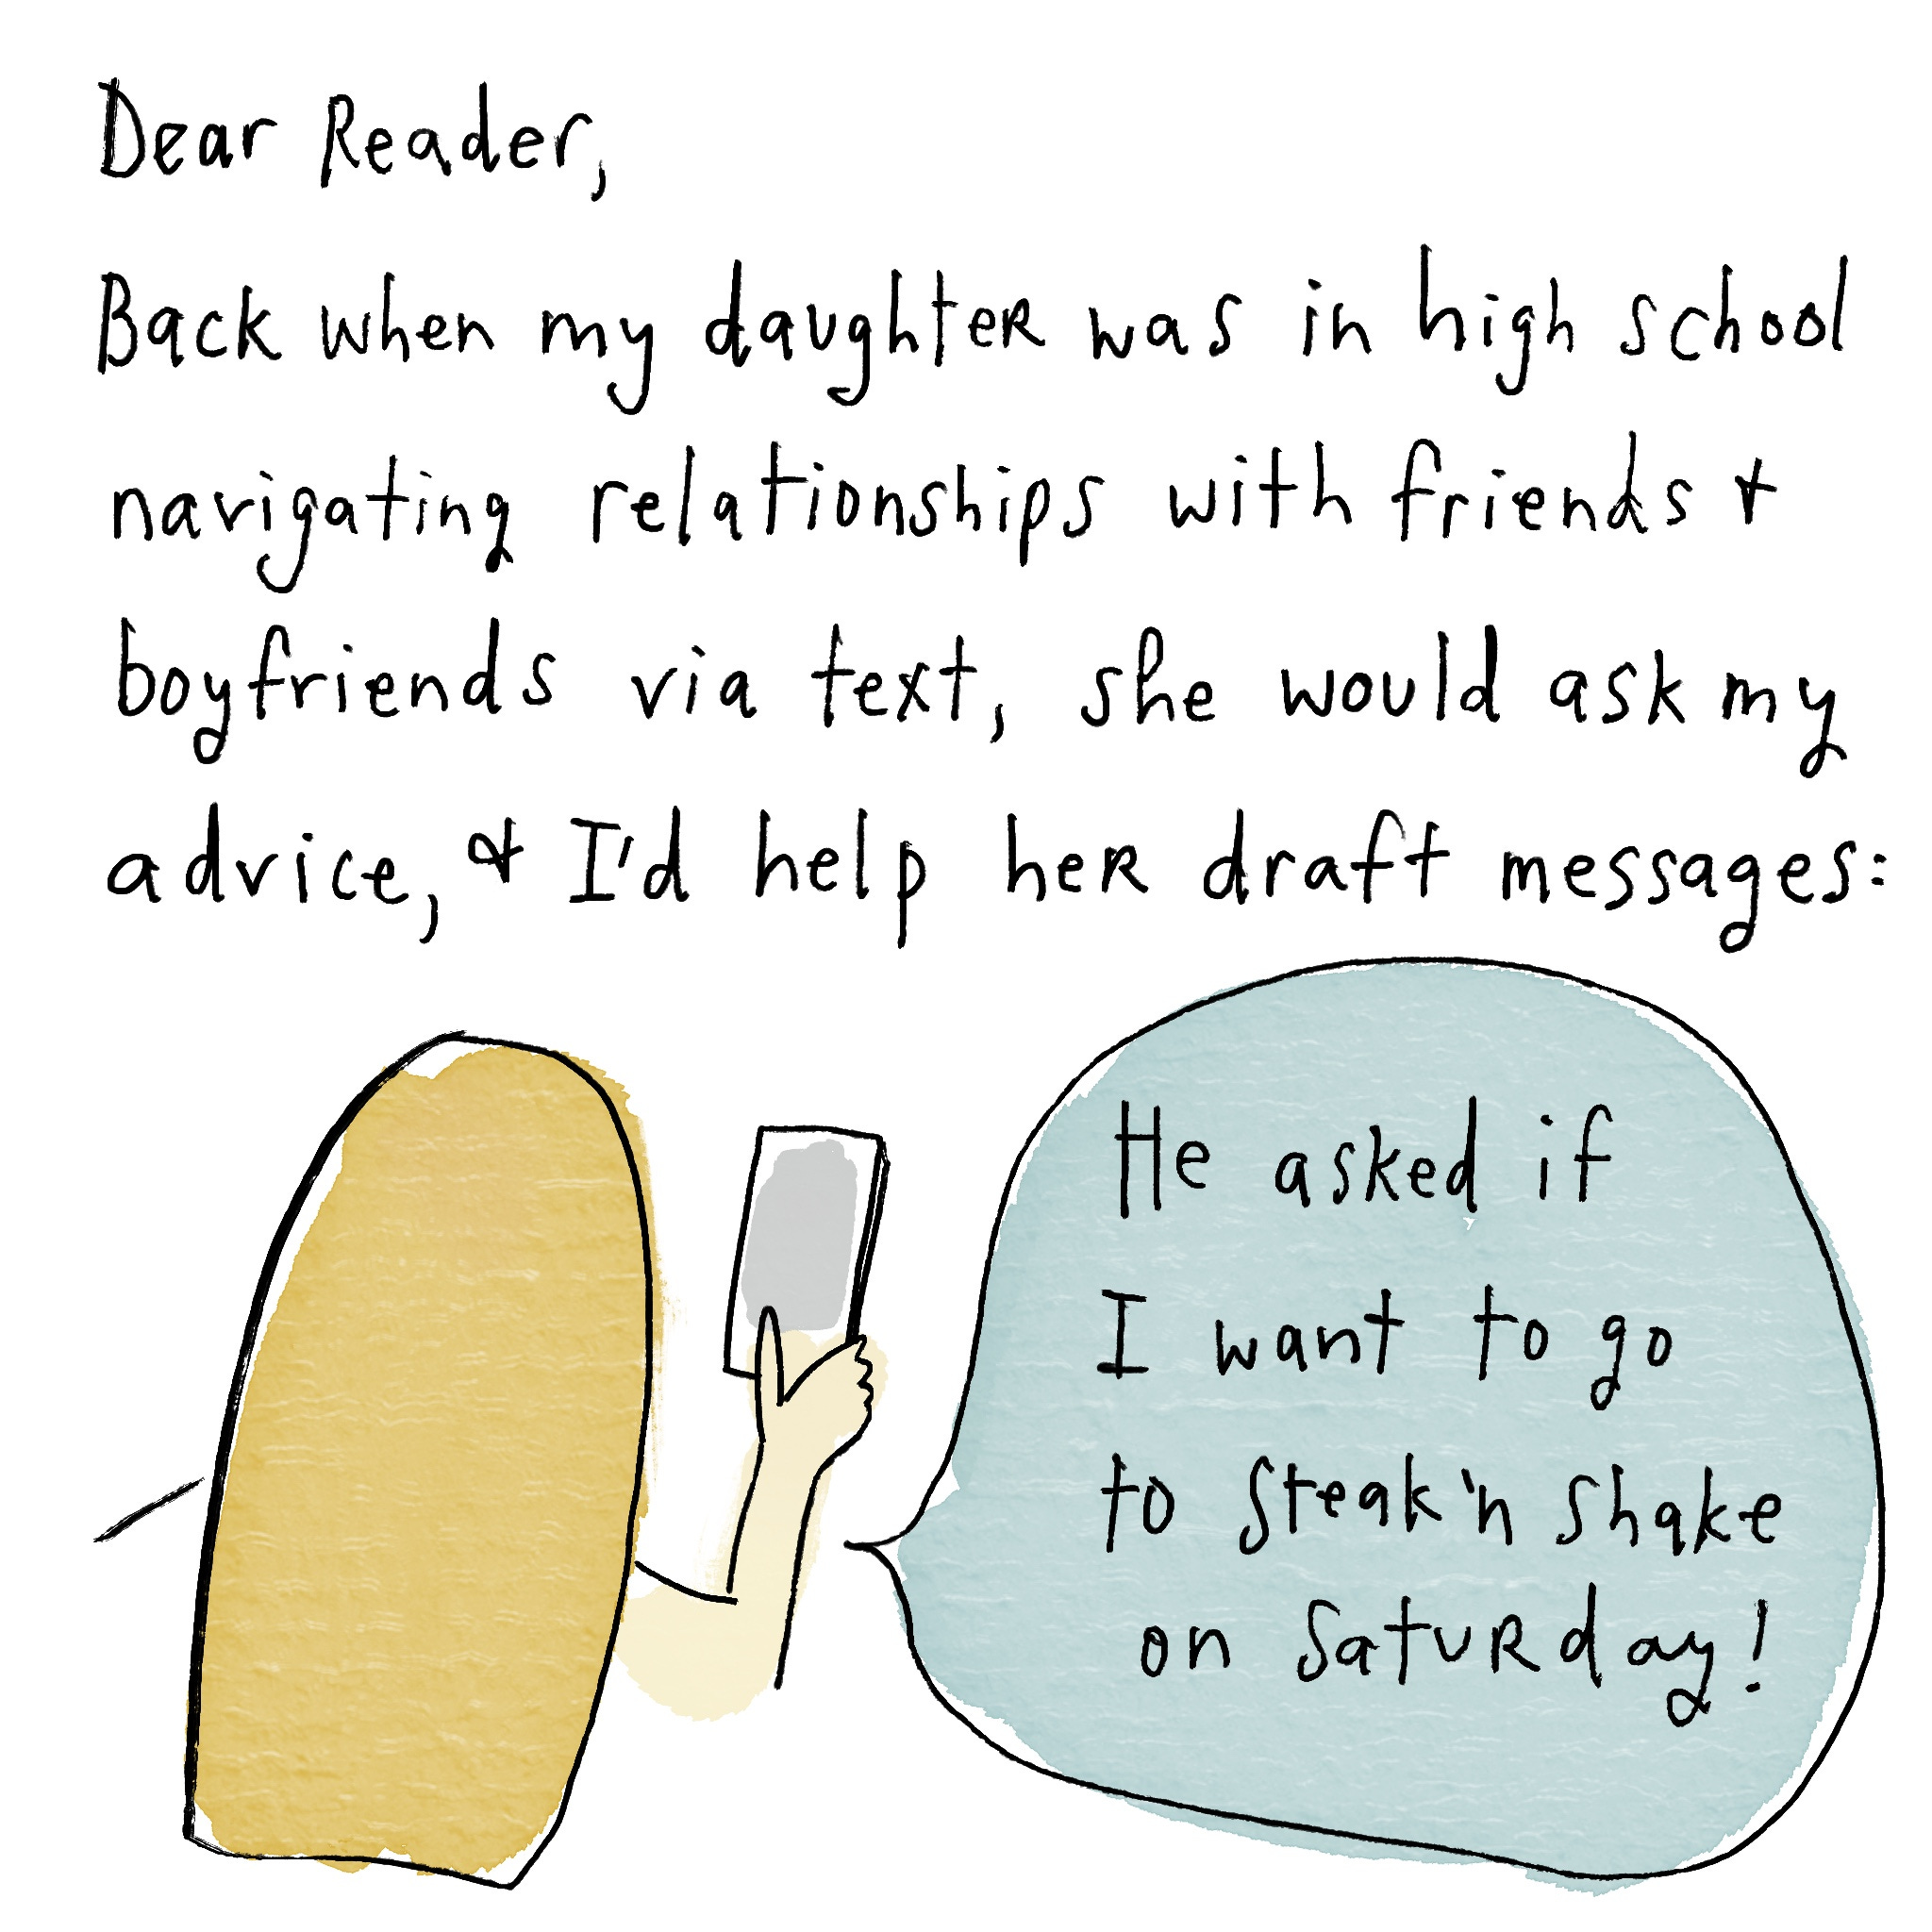 Dear Reader,
Back when my daughter was in high school
navigating relationships with friends &
boyfriends via text, she would ask my
advice, & I'd help her draft messages:
He asked if
I want to go
to Steak 'n Shake
on Saturday!